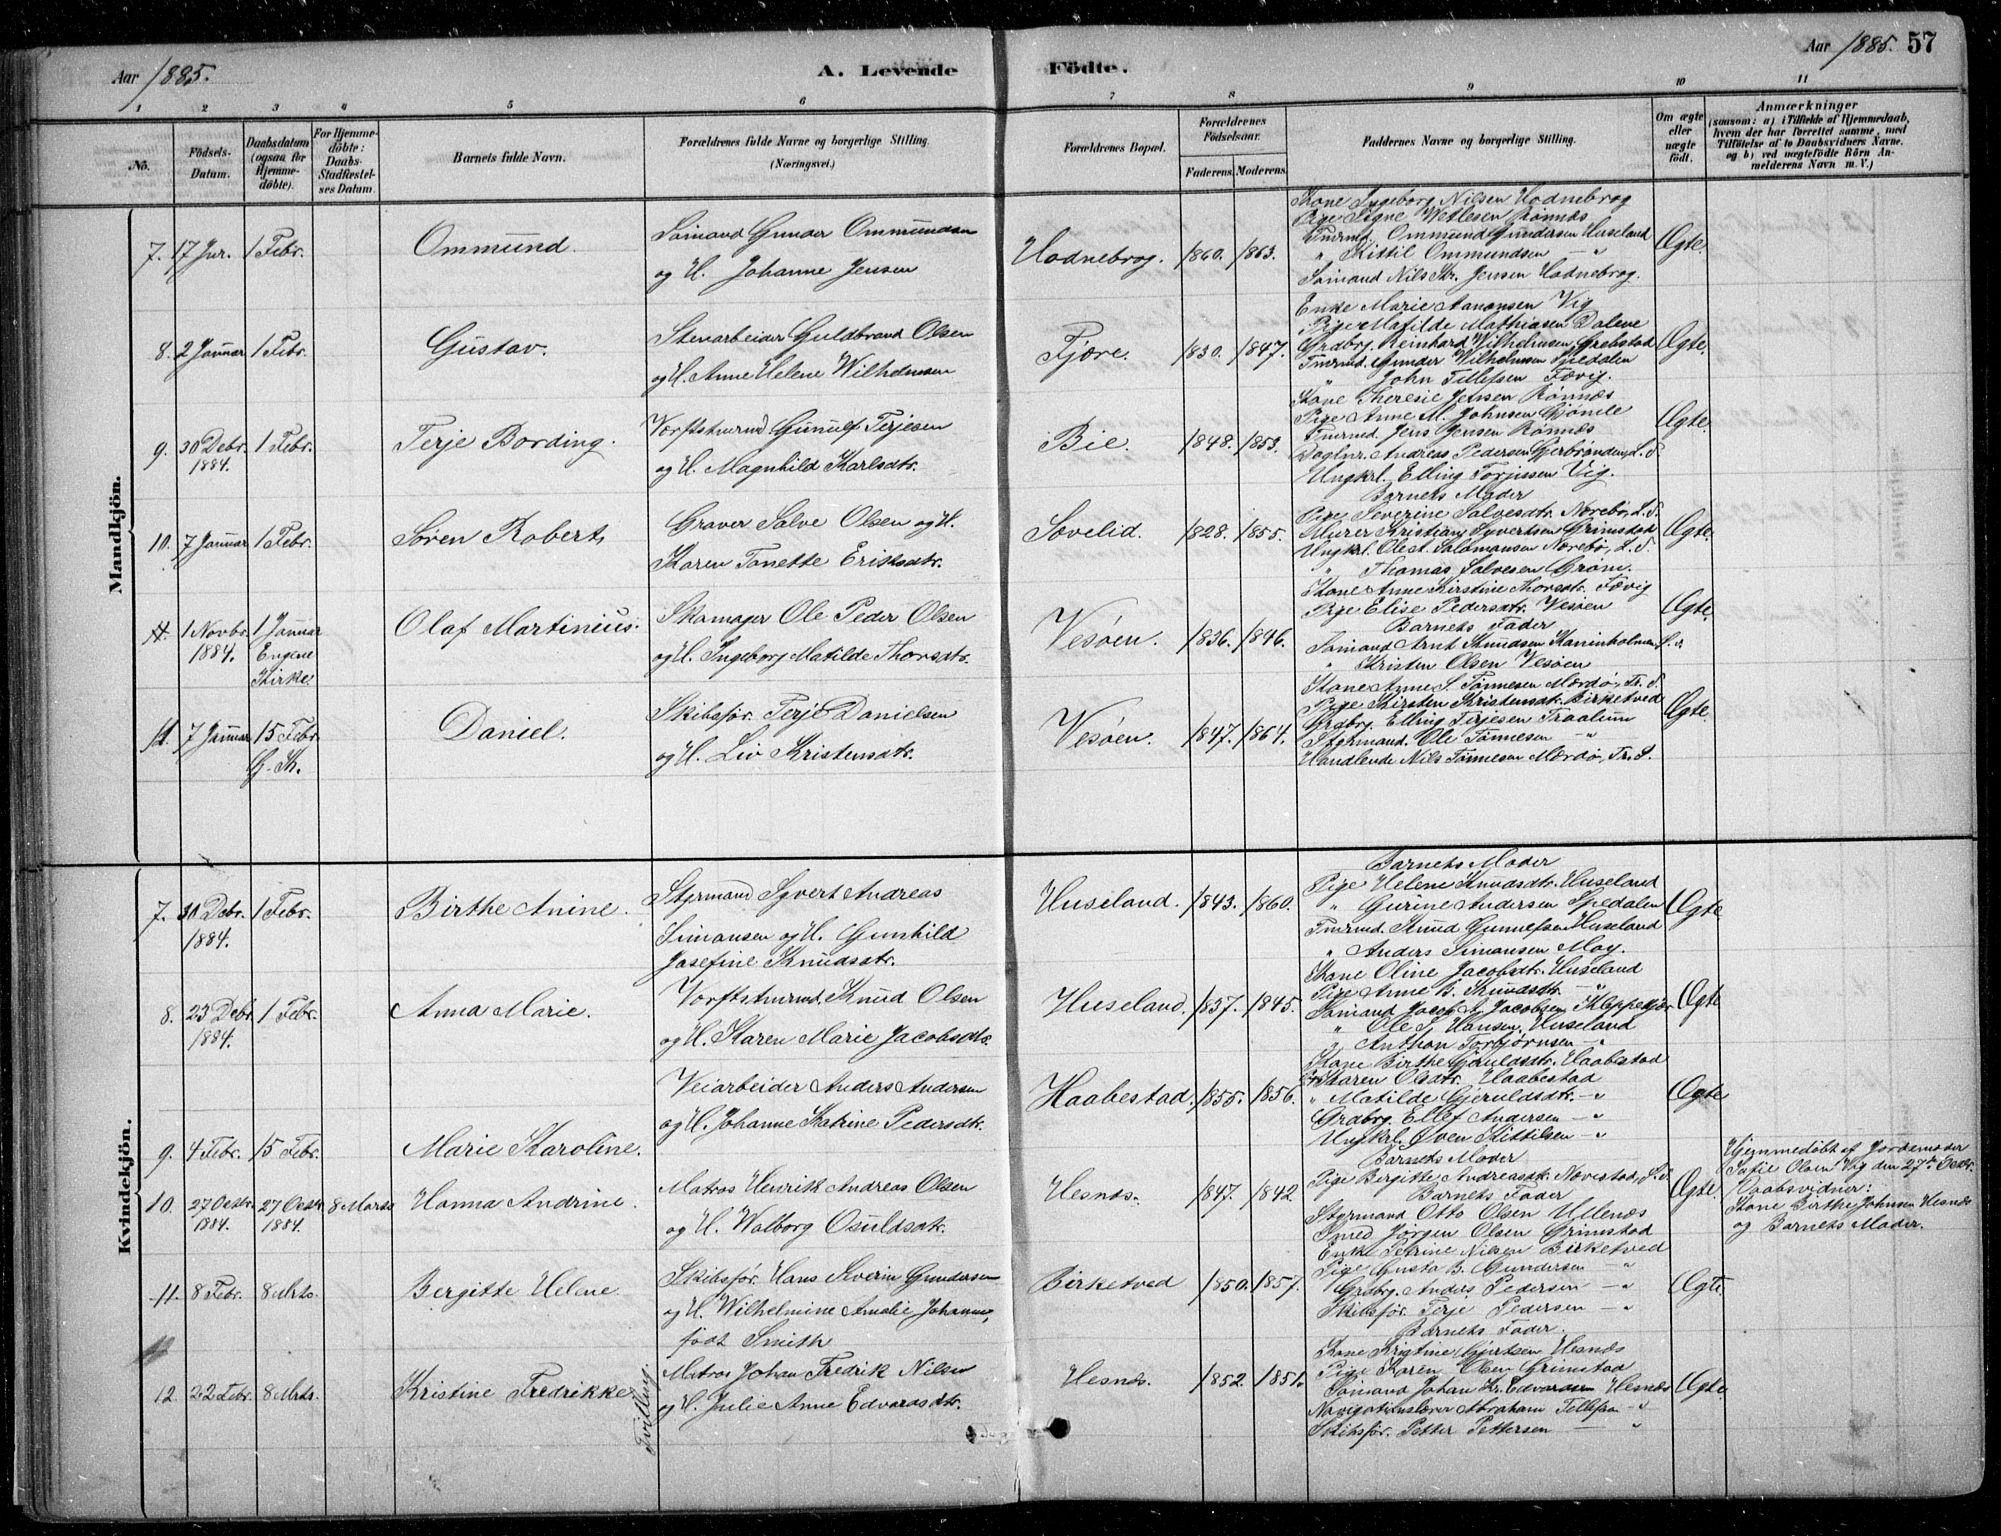 Aar 1885.
A. Levende Födte.
Aar 1885. 57
1 2 3 4 5 6 7 8 9 10 11
No.
Födsels-Datum.
Daabsdatum (ogsaa for Hjemmedöbte).
For Hjemmedöbte: Daabs-Stadfæstelses Datum.
Barnets fulde Navn.
Forældrenes fulde Navne og borgerlige Stilling.
(Næringsvei.)
Forældrenes Bopæl.
Forældrenes Födselsaar.
Faderens. Moderens.
Faddernes Navne og borgerlige Stilling.
Om ægte eller uægte födt.
Anmærkninger
(saasom: a) i Tilfælde af Hjemmedaab, hvem der har forrettet samme, med Tilföielse af to Daabsvidners Navne, og b) ved uægtefödte Börn Anmelderens Navn m. V.)
Mandkjön.
7. 17 Jnr. 1 Febr. Ommund.
Sömand Gunder Ommundsen
og H. Johanne Jensen
Hodnebrog. 1860. 1863.
Kone Ingeborg Nilsen Hodnebrog
Pige Signe Wetlesen Rönnæs
Tmrmd. Ommund Gundersen Huseland
" Kittil Ommundsen — "
Sömand Nils Kr. Jensen Hodnebrog.
Ægte.
8. 2 Januar 1 Febr. Gustav.
Stenarbeider Guldbrand Olsen
og H. Anne Helene Wilhelmsen
Fjære. 1830. 1847.
Enke Marie Aanonsen Vig
Pige Matilde Mathiasen Dalene
Grdbrg. Reinhard Wilhelmsen Grebstad
Tmrmd. Gunder Wilhelmsen Spedalen
" John Tellefsen Fævig.
Ægte.
9. 30 Debr. 1884. 1 Febr. Terje Bording.
Værftstmrmd Gunulf Terjesen
og H. Magnhild Karlsdtr.
Bie. 1848. 1853.
Kone Theresie Jensen Rönnæs
Pige Anne M. Johnsen Gjömle
Tmrmd. Jens Jensen Rönnæs
Daglnr. Andreas Pedersen Gjerbrönden, L. S.
Ungkrl. Elling Torjussen Vig.
Ægte.
10. 7 Januar 1 Febr. Sören Robert,
Graver Salve Olsen og H.
Karen Tonette Eriksdtr.
Sovelid. 1828. 1855.
Barnets Moder
Pige Severine Salvesdtr. Nærebö, L. S.
Murer Kristian Syvertsen Grimstad
Ungkrl. Ole St. Salomonsen Nærebö, L. S.
" Thomas Salvesen Grom.
Ægte.
11. 1 Novbr. 1884. 1 Januar Engene Kirke. Olaf Martinius.
Skomager Ole Peder Olsen
og H. Ingeborg Matilde Thorsdtr.
Vesöen. 1836. 1846.
Kone Anne Kirstine Thorsdtr. Fævig
Pige Elise Pedersdtr. Vesöen
Barnets Fader
Sömand Arnt Knudsen Kaninholmen
" Kristen Olsen Vesöen
Ægte.
12. 7 Januar 15 Febr. G. K. Daniel.
Skibsför. Terje Danielsen
og H. Liv Kristensdtr.
Vesöen. 1847. 1864.
Kone Anne S. Tönnesen Mærdö, Tr. S.
Pige Kirsten Kristensdtr. Birketved
Grdbrg. Elling Terjesen Traalum
Styrmand. Ole Tönnesen — "
Handlende Nils Tönnesen Mærdö, Tr. S.
Ægte.
Kvindekjön.
7. 30 Debr. 1884. 1 Febr. Birthe Anine.
Styrmand Syvert Andreas
Simonsen og H. Gunhild
Josefine Knudsdtr.
Huseland. 1843. 1860.
Barnets Moder
Pige Helene Knudsdtr. Huseland
" Gurine Andersen Spedalen
Tmrmd. Knud Gunnelfsen Huseland
" Anders Simonsen Moy.
Ægte
8. 23 Debr. 1884. 1 Febr. Anna Marie.
Værftstmrmd. Knud Olsen
og H. Karen Marie Jacobsdtr.
Huseland. 1837. 1845.
Kone Oline Jacobsdtr. Huseland
Pige Anne B. Knudsdtr. — "
Sömand Jacob A. Jacobsen Kleppekjær
" Ole S. Hansen, Huseland
" Anthon Torbjörnsen — "
Ægte
9. 4 Febr. 15 Febr. Marie Karoline.
Veiarbeider Anders Andersen
og H. Johanne Katrine Pedersdtr.
Haabestad. 1855. 1856.
Kone Birthe Gjeruldsdtr. Haabestad
Karen Olsdtr. Haabestad
" Matilde Gjeruldsdtr. — "
Grdbrg. Ellef Andersen — "
Ungkrl. Oven Kittilsen — "
Ægte
10. 27 Octbr. 1884. 27 Octbr. 1884. 8 Marts Hanna Andrine.
Matros Henrik Andreas Olsen
og H. Walborg Osuldsdtr.
Hesnæs. 1847. 1842.
Barnets Moder
Pige Birgitte Andreasdtr. Nævestad, L. S.
Barnets Fader
Styrmand Otto Olsen Ulenæs
Smed Jörgen Olsen Grimstad
Ægte.
Hjemmedöbt af Jordemoder
Sofie Olsen Vig den 27de Octbr.
Daabsvidner:
Kone Birthe Johnsen Hesnæs
og Barnets Moder.
11. 8 Febr. 8 Mrts. Bergitte Helene.
Skibsför. Hans Severin Gundersen
og H. Wilhelmine Amalie Johanne,
födt Smith
Birketved 1850. 1857.
Enke Petrine Nilsen Birketved
Pige Gusta B. Gundersen — "
Grdbrg. Anders Pedersen — "
Skibsför. Terje Pedersen — "
Barnets Fader.
Ægte.
12. 22 Febr. 8 Mrts. Kristine Fredrikke
Tvilling.
Matros Johan Fredrik Nilsen
og H. Julie Anne Edvardsdtr.
Hesnæs. 1852. 1851.
Kone Kristine Gjertsen Hesnæs
Pige Karen Olsen Grimstad
Sömand Johan Kr. Edvardsen Hesnæs
Navigationslærer Abraham Tellefsen — "
Skibsför. Petter Pettersen — "
Ægte.